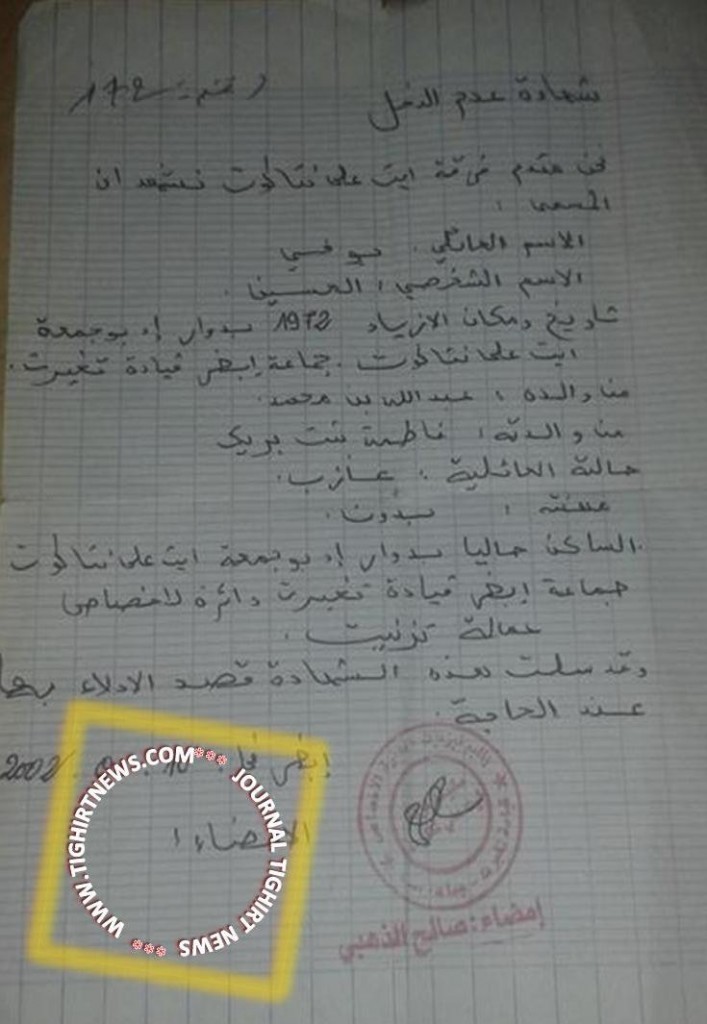 شهادة عدم الدخل
رقم: 172
نحن مقدم فرقة ايت علي نتاكوت نشهد ان
المسمى :
الاسم العائلي : بوفسي
الاسم الشخصي : الحسين
تاريخ ومكان الازياد 1972 بدوار إد بوجمعة
ايت علي نتاكوت . جماعة إبضر قيادة تغيرت .
من والده : عبد الله بن محمد .
من والدته : فاطمة بنت بريك
حالته العائلية : عازب .
مهنته : بدون .
الساكن حاليا بدوار إد بوجمعة ايت علي نتاكوت
جماعة إبضر قيادة تغيرت دائرة لاخصاص
عمالة تزنيت .
وقد سلمت هذه الشهادة قصد الادلاء بها
عند الحاجة .
إبضر في : 2002
الامضاء :
إمضاء : صالح الذهبي
WWW.TIGHIRTNEWS.COM*** JOURNAL TIGHIRT NEWS ***